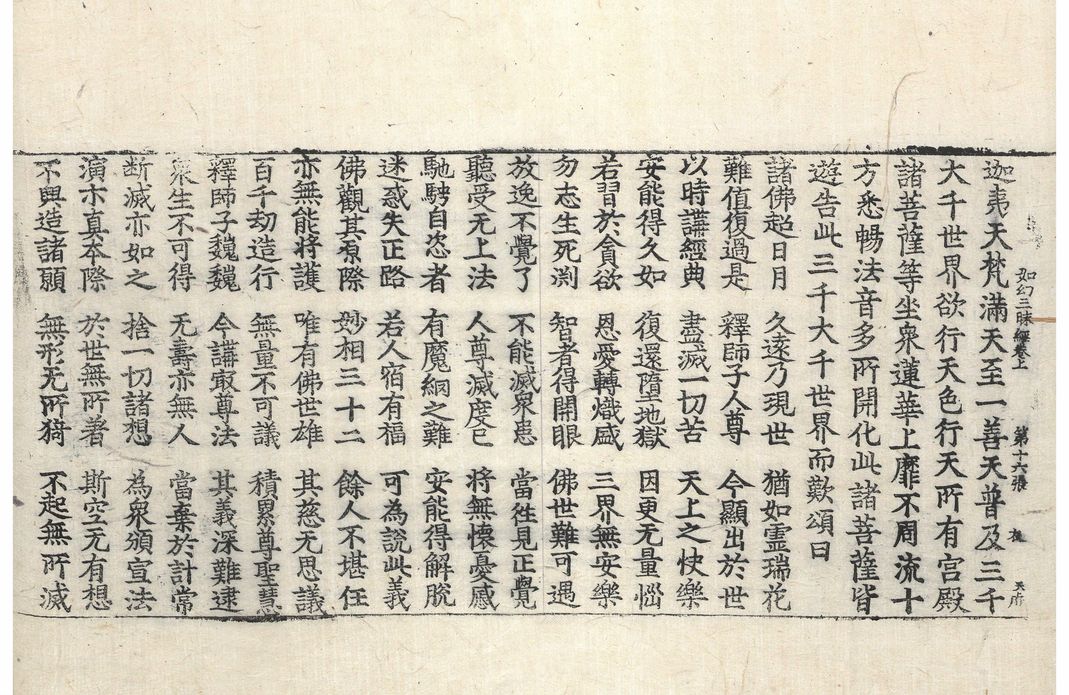 迦夷天梵滿天至一善天普及三千
如幻三昧經卷上 第十六張
大千世界欲行天色行天所有宮殿
諸菩薩等坐衆蓮華上靡不周流十
方悉暢法音多所開化此諸菩薩皆
遊告此三千大千世界而歎頌曰
諸佛超日月 久遠乃現世 猶如霊瑞花
難值復過是 釋師子人尊 今顯出於世
以時講經典 盡滅一切苦 天上之快樂
安能得久如 復還墮地獄 因更无量惱
若習於貪欲 恩愛轉熾盛 三界無安樂
勿志生死渕 智者得開眼 佛世難可遇
放逸不覺了 不能滅衆患 當徃見正覺
聽受无上法 人尊滅度已 將無懷憂慼
馳騁自恣者 有魔網之難 安能得解脫
迷惑失正路 若人宿有福 可為說此義
佛觀其原際 妙相三十二 餘人不堪任
亦無能將護 唯有佛世雄 其慈无思議
百千劫造行 無量不可議 積累尊聖慧
釋師子巍巍 今講㝡尊法 其義深難逮
衆生不可得 无壽亦無人 當棄於計常
断滅亦如之 捨一切諸想 為衆頒宣法
演亦真本際 於世無所著 斯空无有想
不興造諸願 無形无所猗 不起無所滅